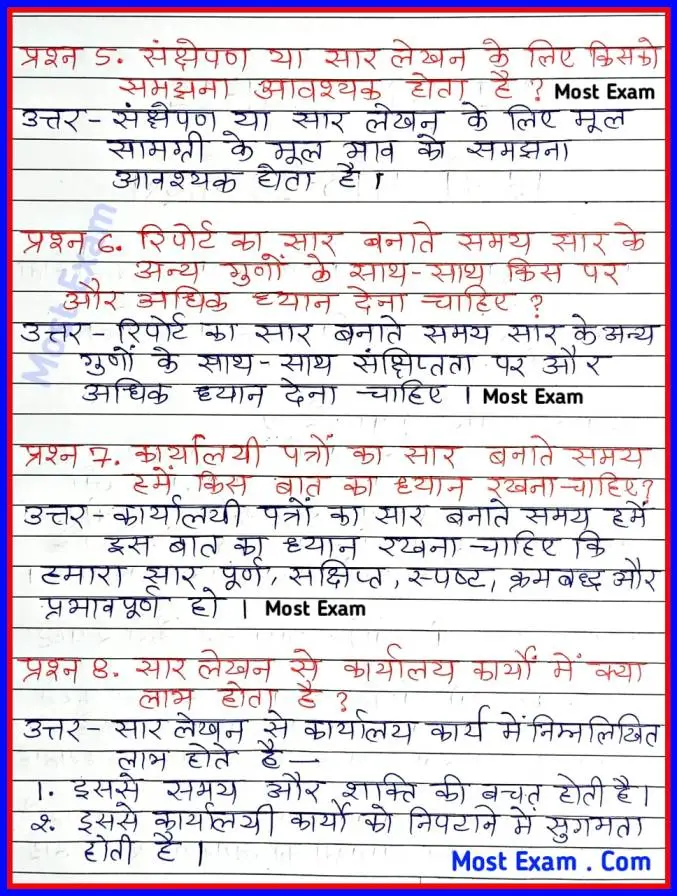 प्रश्न 5. संक्षेपण या सार लेखन के लिए किसको
समझना आवश्यक होता है ? Most Exam
उत्तर - संक्षेपण या सार लेखन के लिए मूल
सामग्री के मूल भाव को समझना
आवश्यक होता है ।
प्रश्न 6. रिपोर्ट का सार बनाते समय सार के
अन्य गुणों के साथ-साथ किस पर
और अधिक ध्यान देना चाहिए ?
उत्तर - रिपोर्ट का सार बनाते समय सार के अन्य
गुणों के साथ-साथ संक्षिप्तता पर और
अधिक ध्यान देना चाहिए । Most Exam
Most Exam
प्रश्न 7. कार्यालयी पत्रों का सार बनाते समय
हमें किस बात का ध्यान रखना चाहिए?
उत्तर - कार्यालयी पत्रों का सार बनाते समय हमें
इस बात का ध्यान रखना चाहिए कि
हमारा सार पूर्ण, सक्षिप्त, स्पष्ट, क्रमबध्द और
प्रभावपूर्ण हो । Most Exam
प्रश्न 8. सार लेखन से कार्यालय कार्यों में क्या
लाभ होता है ?
उत्तर - सार लेखन से कार्यालय कार्य में निम्नलिखित
लाभ होते है —
1. इससे समय और शक्ति की बचत होती है।
२. इससे कार्यालयी कार्यों को निपटाने में सुगमता
होती है ।
Most Exam . Com